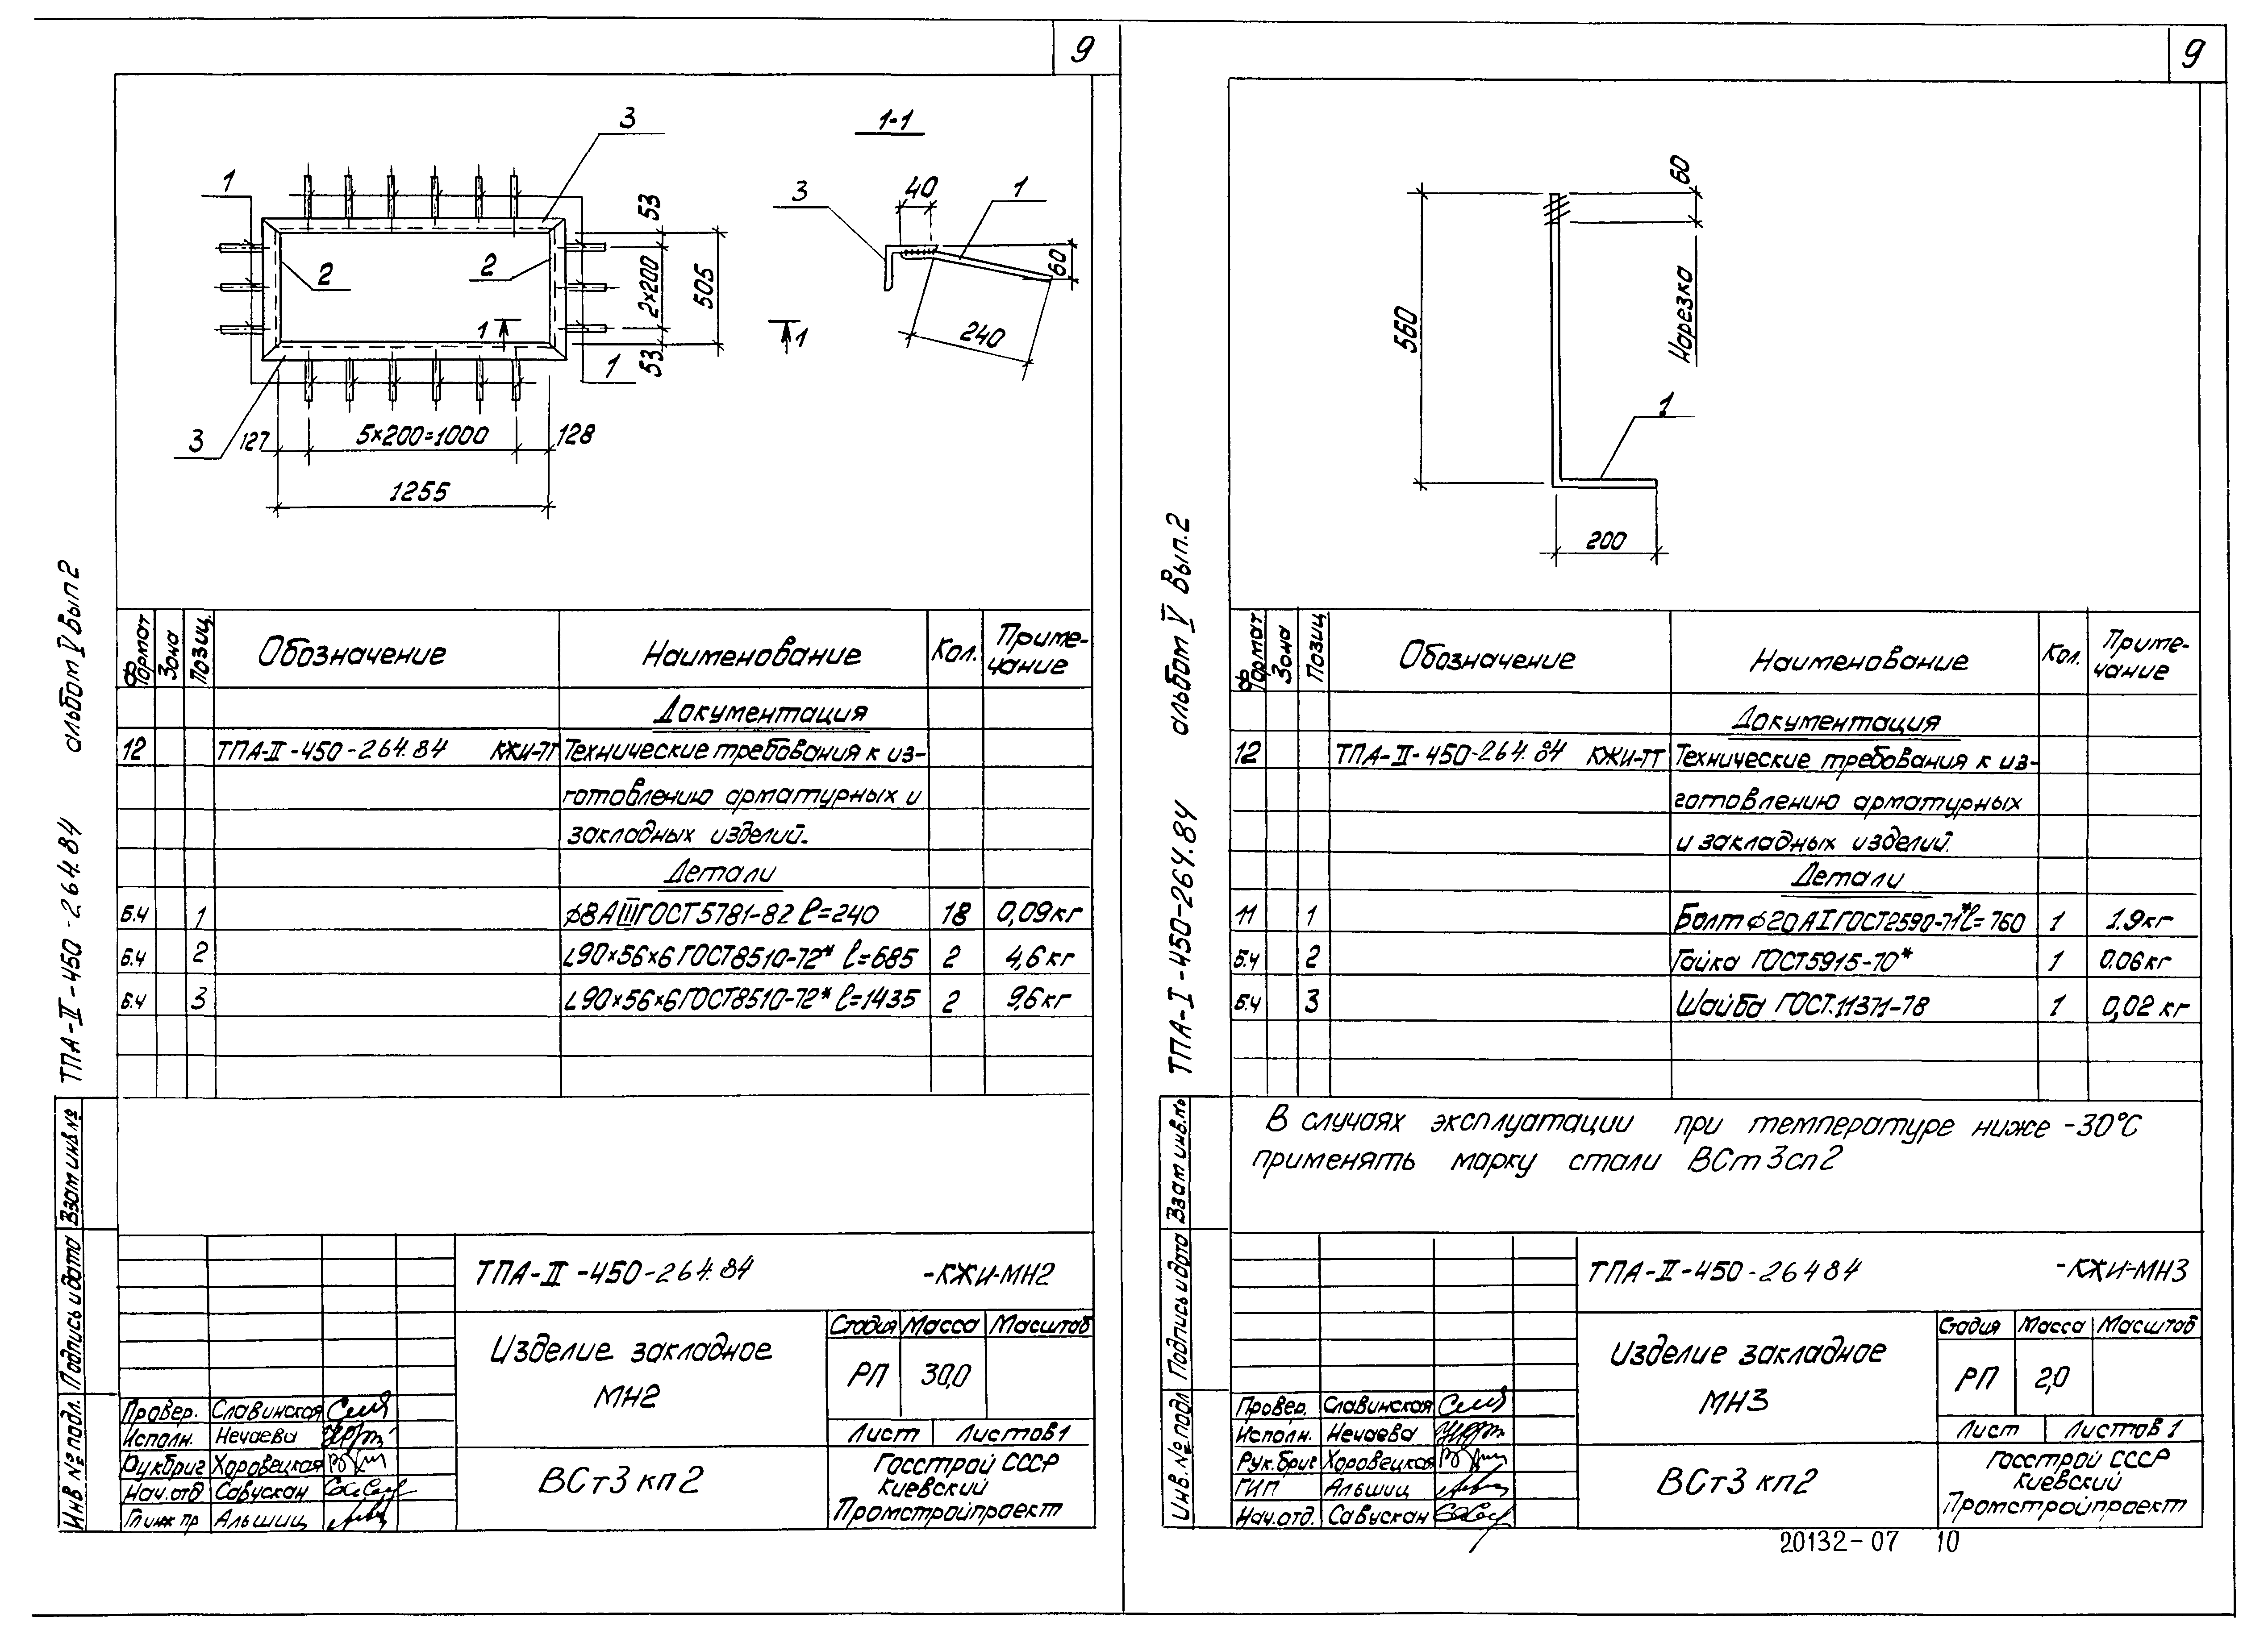 9
3
1-1
1
2
2
1
1
3
53
2×200
53
505
127
5×200=1000
128
1255
3
40
1
60
240
1
альбом V вып 2
ТПА-II-450-264.84
Формат
Зона
Позиц.
Обозначение
Наименование
Кол.
Приме-
чание
Документация
12 ТПА-II-450-264.84 КЖИ-ТТ Технические требования к из-
готовлению арматурных и
закладных изделий.
Детали
Б.Ч 1 ϕ8АIII ГОСТ 5781-82 ℓ=240 18 0,09кг
Б.Ч 2 L90×56×6 ГОСТ 8510-72* ℓ=685 2 4,6кг
Б.Ч 3 L90×56×6 ГОСТ 8510-72* ℓ=1435 2 9,6кг
Взам инв №
Подпись и дата
Инв № подл.
ТПА-II-450-264.84 -КЖИ-МН2
Изделие закладное
МН2
Стадия Масса Масштаб
РП 30,0
Лист Листов 1
ВСт3 кп2
Госстрой СССР
Киевский
Промстройпроект
Провер. Славинская
Исполн. Нечаева
Рукбриг Хоровецкая
Нач.отд Савускан
Гл инж пр Альшиц
9
560
60
Нарезка
1
200
альбом V вып.2
ТПА-I-450-264.84
Формат
Зона
Позиц
Обозначение
Наименование
Кол.
Приме-
чание
Документация
12 ТПА-II-450-264.84 КЖИ-ТТ Технические требования к из-
готовлению арматурных
и закладных изделий.
Детали
11 1 Болт ϕ20АI ГОСТ2590-71* ℓ=760 1 1.9кг
Б.Ч 2 Гайка ГОСТ5915-70* 1 0.06кг
Б.Ч 3 Шайба ГОСТ.11371-78 1 0,02 кг
В случаях эксплуатации при температуре ниже -30°С
применять марку стали ВСт3сп2
Взам инв.№
Подпись и дата
Инв.№ подл
ТПА-II-450-26484 -КЖИ-МН3
Изделие закладное
МН3
Стадия Масса Масштаб
РП 2,0
Лист Листов 1
ВСт3 кп2
Госстрой СССР
Киевский
Промстройпроект
Провер. Славинская
Исполн. Нечаева
Рук.бриг Хоровецкая
ГИП Альшиц
Нач.отд. Савускан
20132-07 10